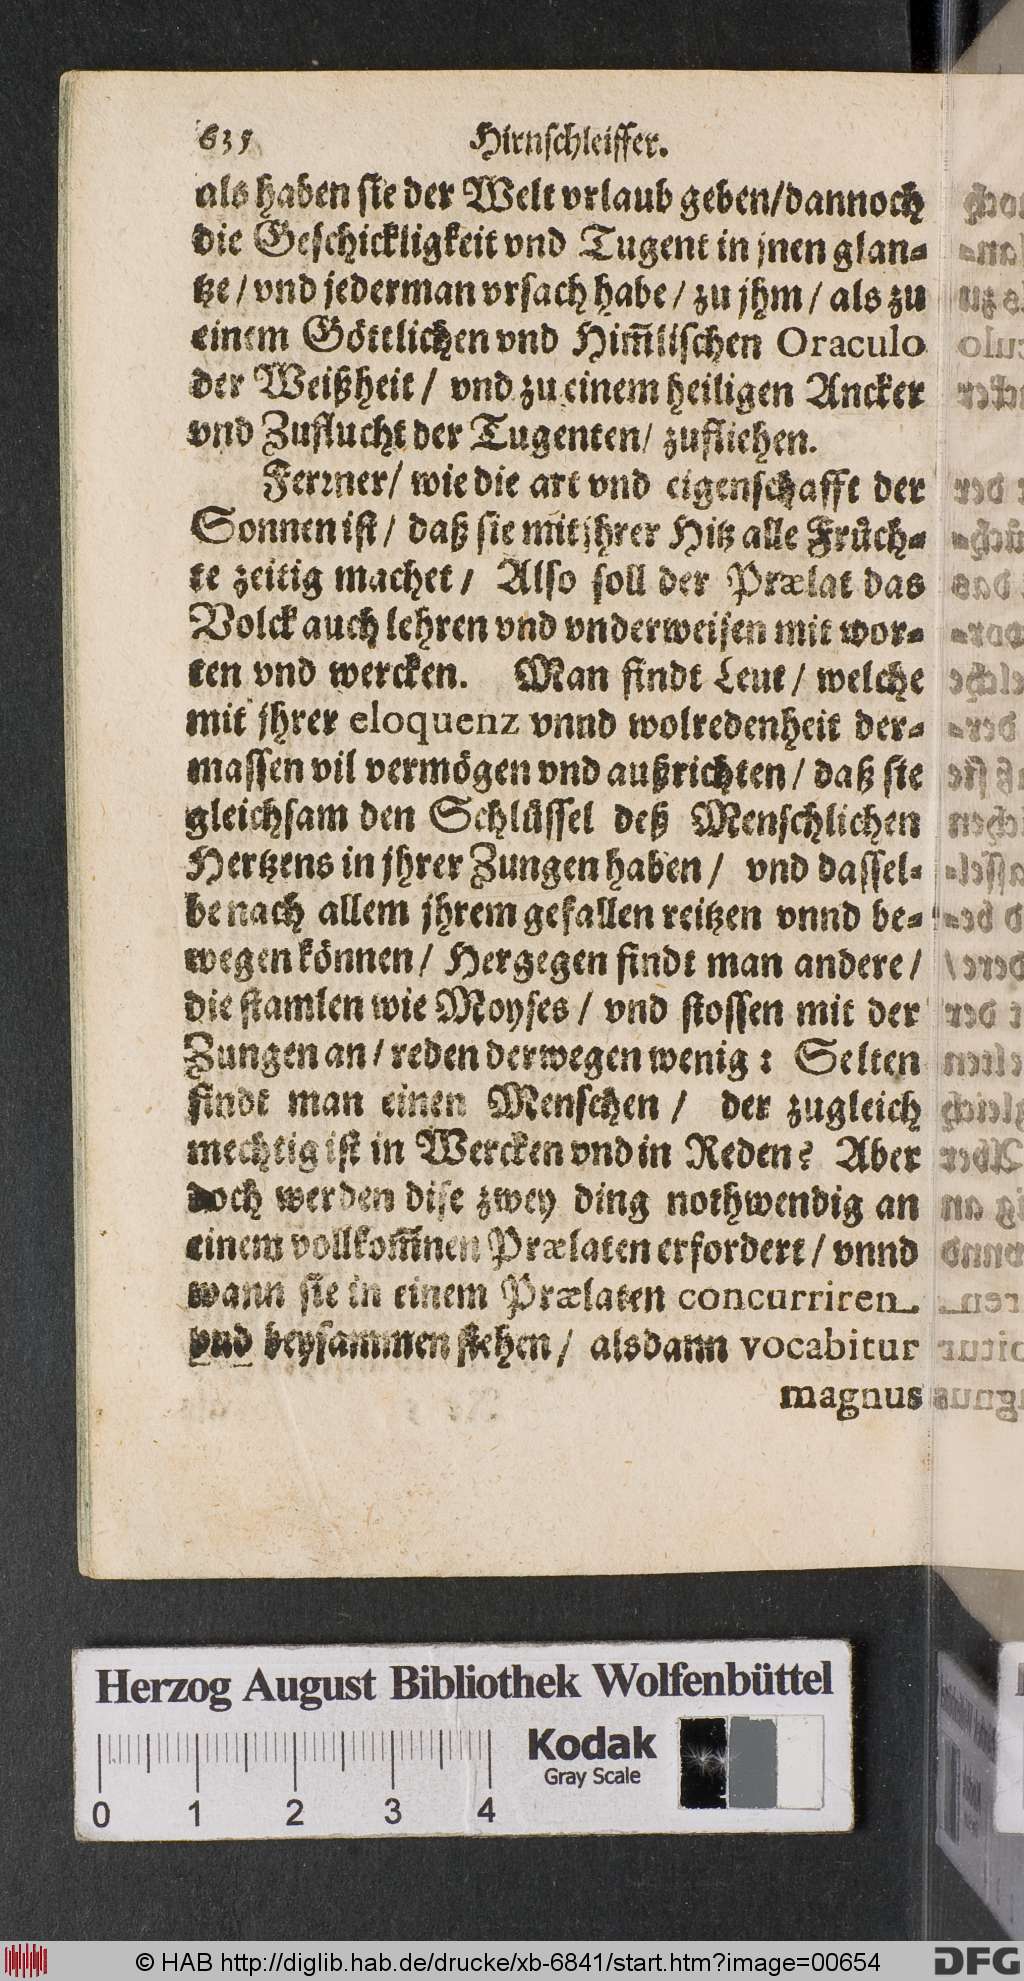 635 Hirnschleiffer.
als haben sie der Welt vrlaub geben/dannoch
die Geschickligkeit vnd Tugent in jnen glan-
tze/vnd jederman vrsach habe/ zu jhm/ als zu
einem Göttlichen vnd Him̅lischen Oraculo
der Weißheit/ vnd zu einem heiligen Ancker
vnd Zuflucht der Tugenten/ zufliehen.
Ferꝛner/ wie die art vnd eigenschafft der
Sonnen ist/ daß sie mit jhrer Hitz alle Fruͤch-
te zeitig machet/ Also soll der Prælat das
Volck auch lehren vnd vnderweisen mit wor-
ten vnd wercken. Man findt Leut/ welche
mit jhrer eloquenz vnnd wolredenheit der-
massen vil vermögen vnd außrichten/ daß sie
gleichsam den Schluͤssel deß Menschlichen
Hertzens in jhrer Zungen haben/ vnd dassel-
be nach allem jhrem gefallen reitzen vnnd be-
wegen können/ Hergegen findt man andere/
die stamlen wie Moyses/ vnd stossen mit der
Zungen an/ reden derwegen wenig: Selten
findt man einen Menschen/ der zugleich
mechtig ist in Wercken vnd in Reden? Aber
doch werden dise zwey ding nothwendig an
einem vollkom̅nen Prælaten erfordert/ vnnd
wann sie in einem Prælaten concurriren
vnd beysammen stehen/ alsdann vocabitur
magnus
Herzog August Bibliothek Wolfenbüttel
Kodak
Gray Scale
0 1 2 3 4
© HAB http://diglib.hab.de/drucke/xb-6841/start.htm?image=00654
DFG